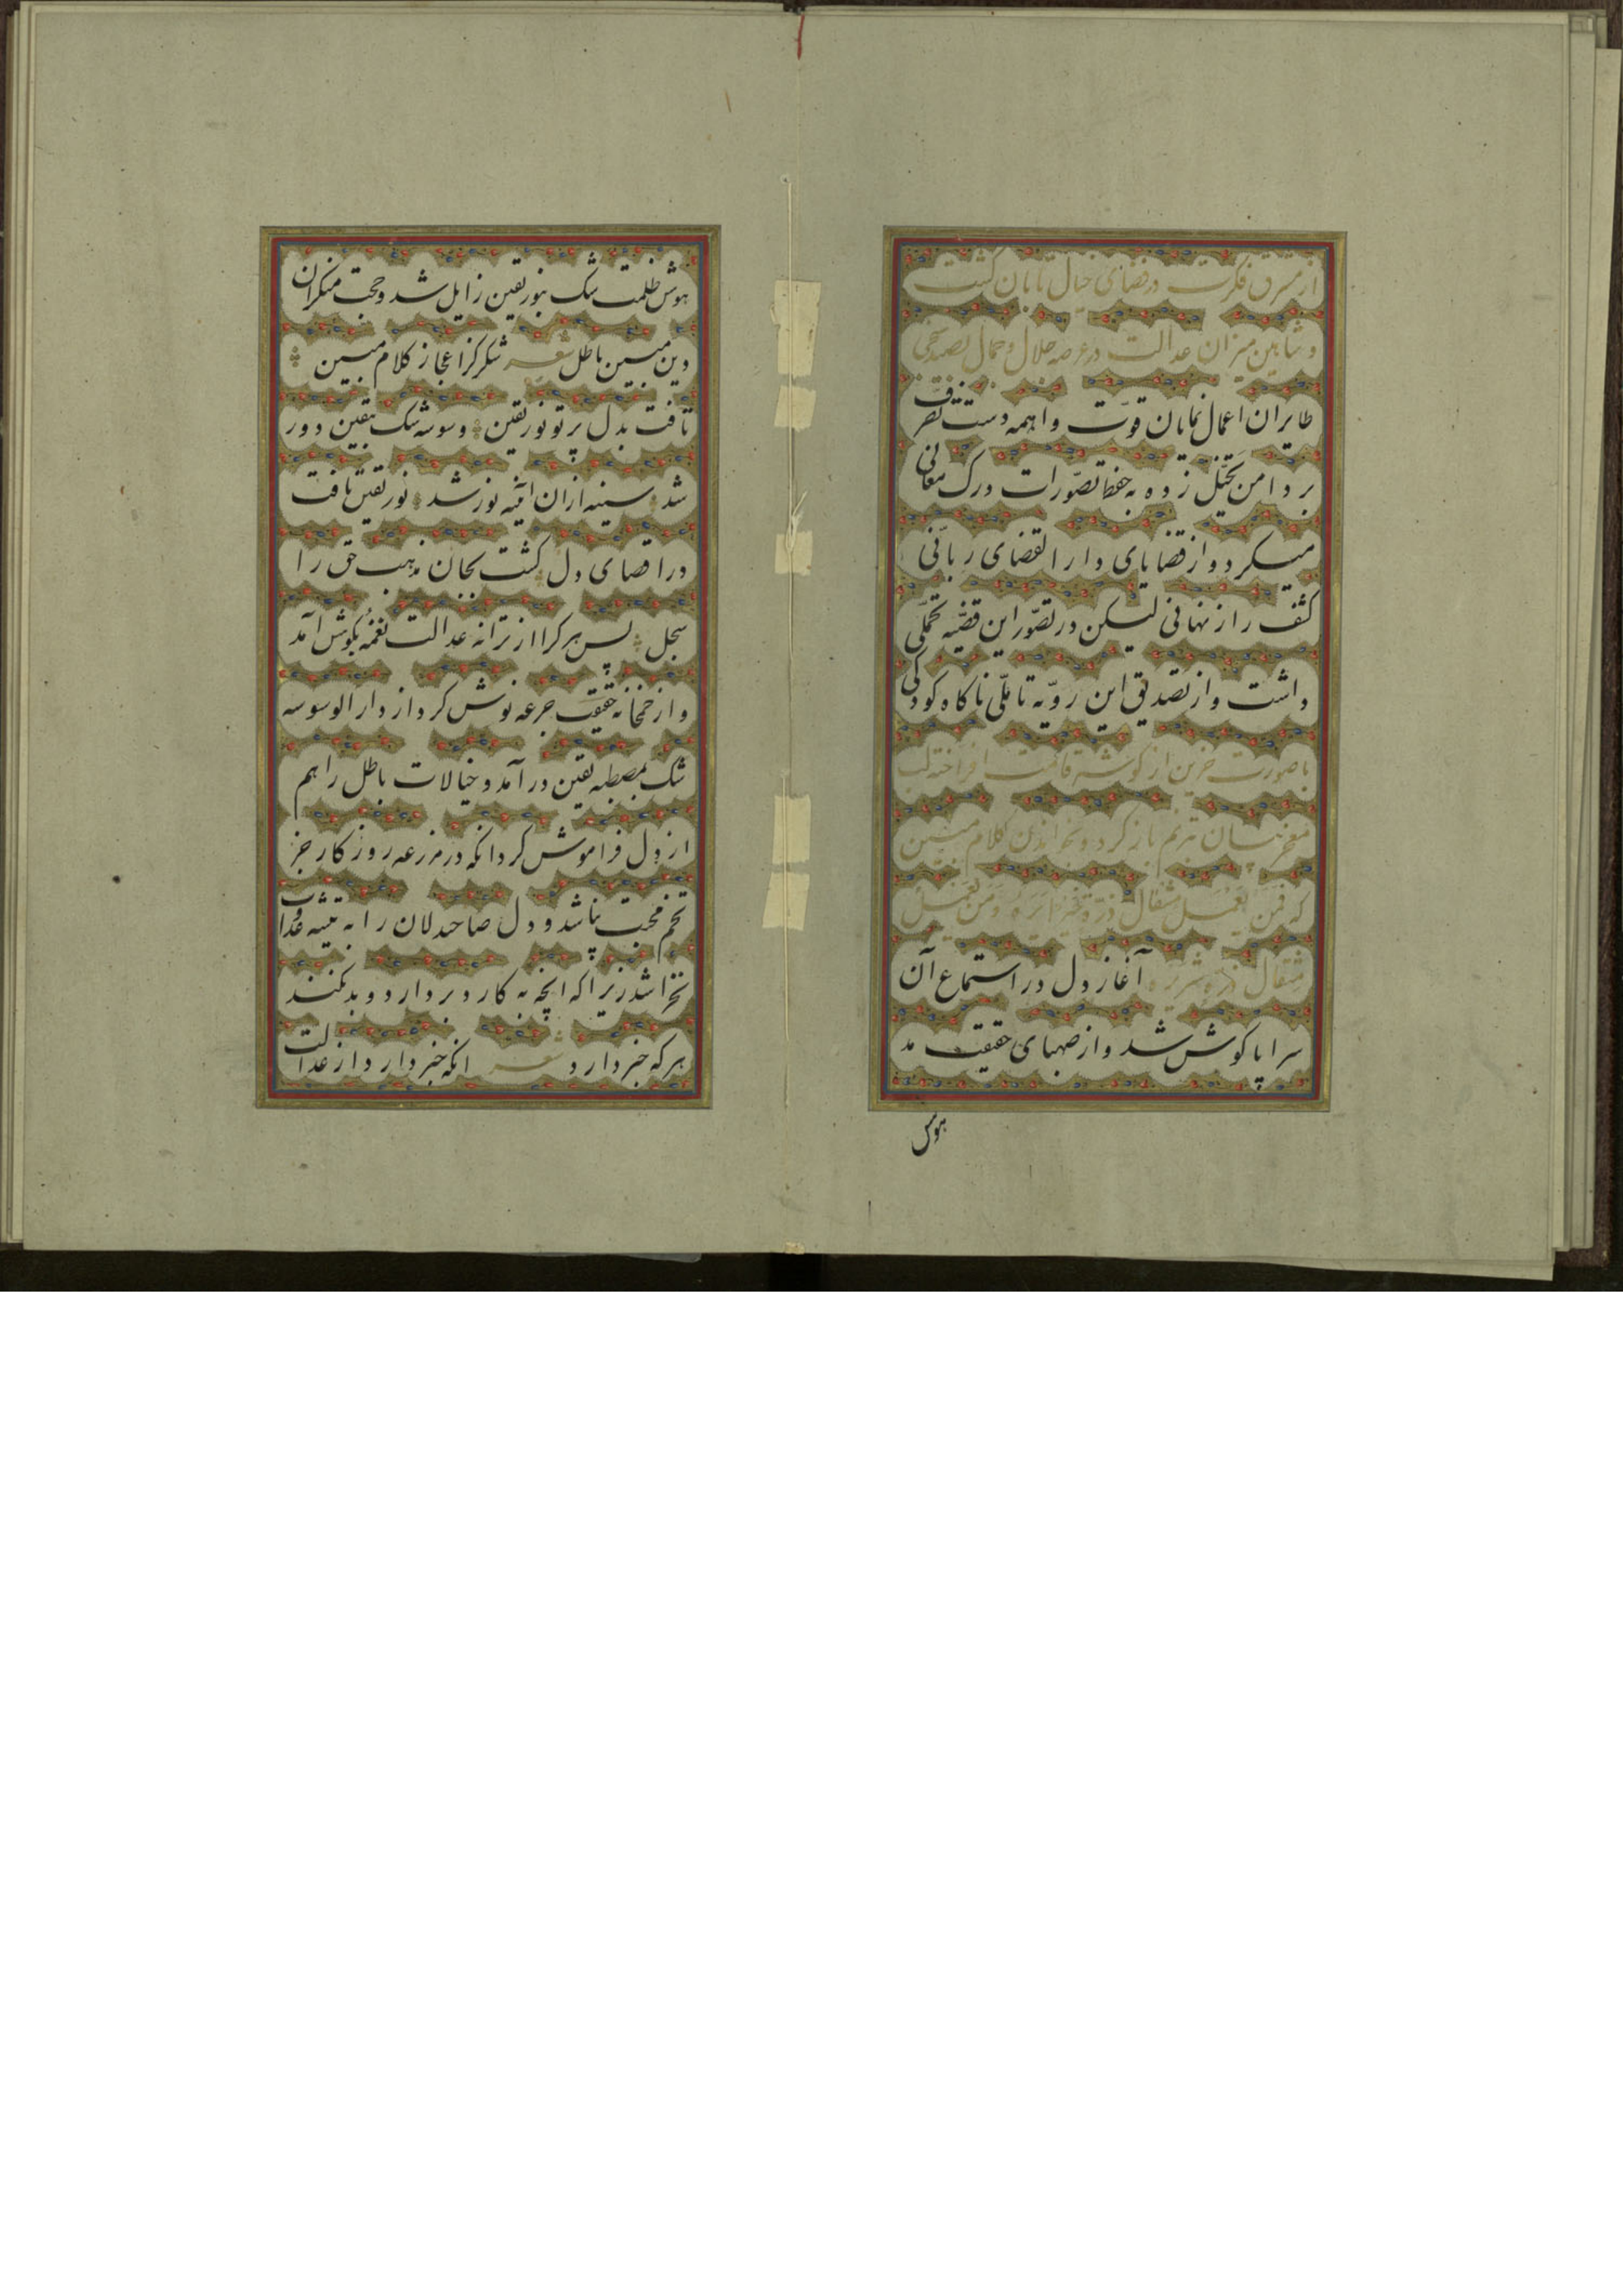 از مشرق فکرت در فضای خیال تابان گشت
و شاهین میزان عدالت در عرصه جلال و جمال بصید
طایران اعمال نمایان قوّت واهمه دست تصرّف
بر دامن تخیّل زده به حفظ تصوّرات درک معانی
میکرد و از قضایای دار القضای ربّانی
کشف راز نهانی لیکن در تصوّر این قضیّه تحمّلی
داشت و از تصدیق این رویّه تاملّی ناکاه کودکی
با صورت حزین از کوشه قامت افراخته لب
ترنم باز کرد و بخواندن کلام مبین
که فمن یعمل مثقال ذرّة خیرا یره و من یعمل
مثقال ذره شر یره آغاز دل در استماع آن
سراپا کوش شد و از صهبای حقیقت مد
هوش
هوش ظلمت شک بنور یقین زایل شد و حجت منکران
دین مبین باطل شعر شکر کز اعجاز کلام مبین
تافت بدل پرتو نور یقین وسوسه شک بیقین دور
شد سینه ازان آینه نور شد نور یقین تافت
در اقصای دل کشت بجان مذهب حق را
سجل پس هر کرا از ترانه عدالت نغمه بکوش آمد
و از خمخانه حقیقت جرعه نوش کرد از دار الوسوسه
شک بمصطبه یقین در آمد و خیالات باطل را هم
از دل فراموش کرد انکه در مزرعه روزکار جز
تخم محبت نپاشد و دل صاحبدلان را به تیشه
نخراشد زیرا که انچه به کارد بردارد و بد نکند
هر که خبر دارد شعر انکه خبر دارد از عدالت